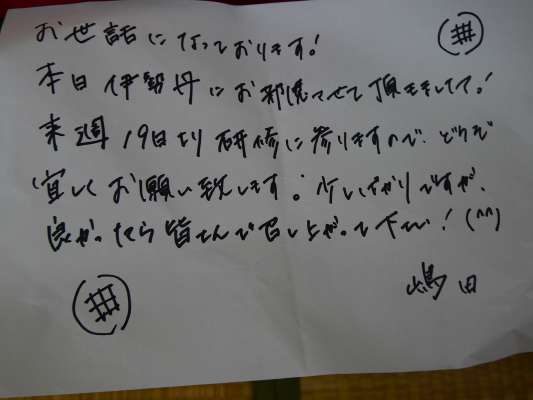 お世話になっております!
本日伊勢丹にお邪魔させて頂きまして!
来週19日より研修に参りますので、どうぞ
宜しくお願い致します。少しばかりですが、
良かったら皆さんで召し上がって下さい!(^^)
嶋田